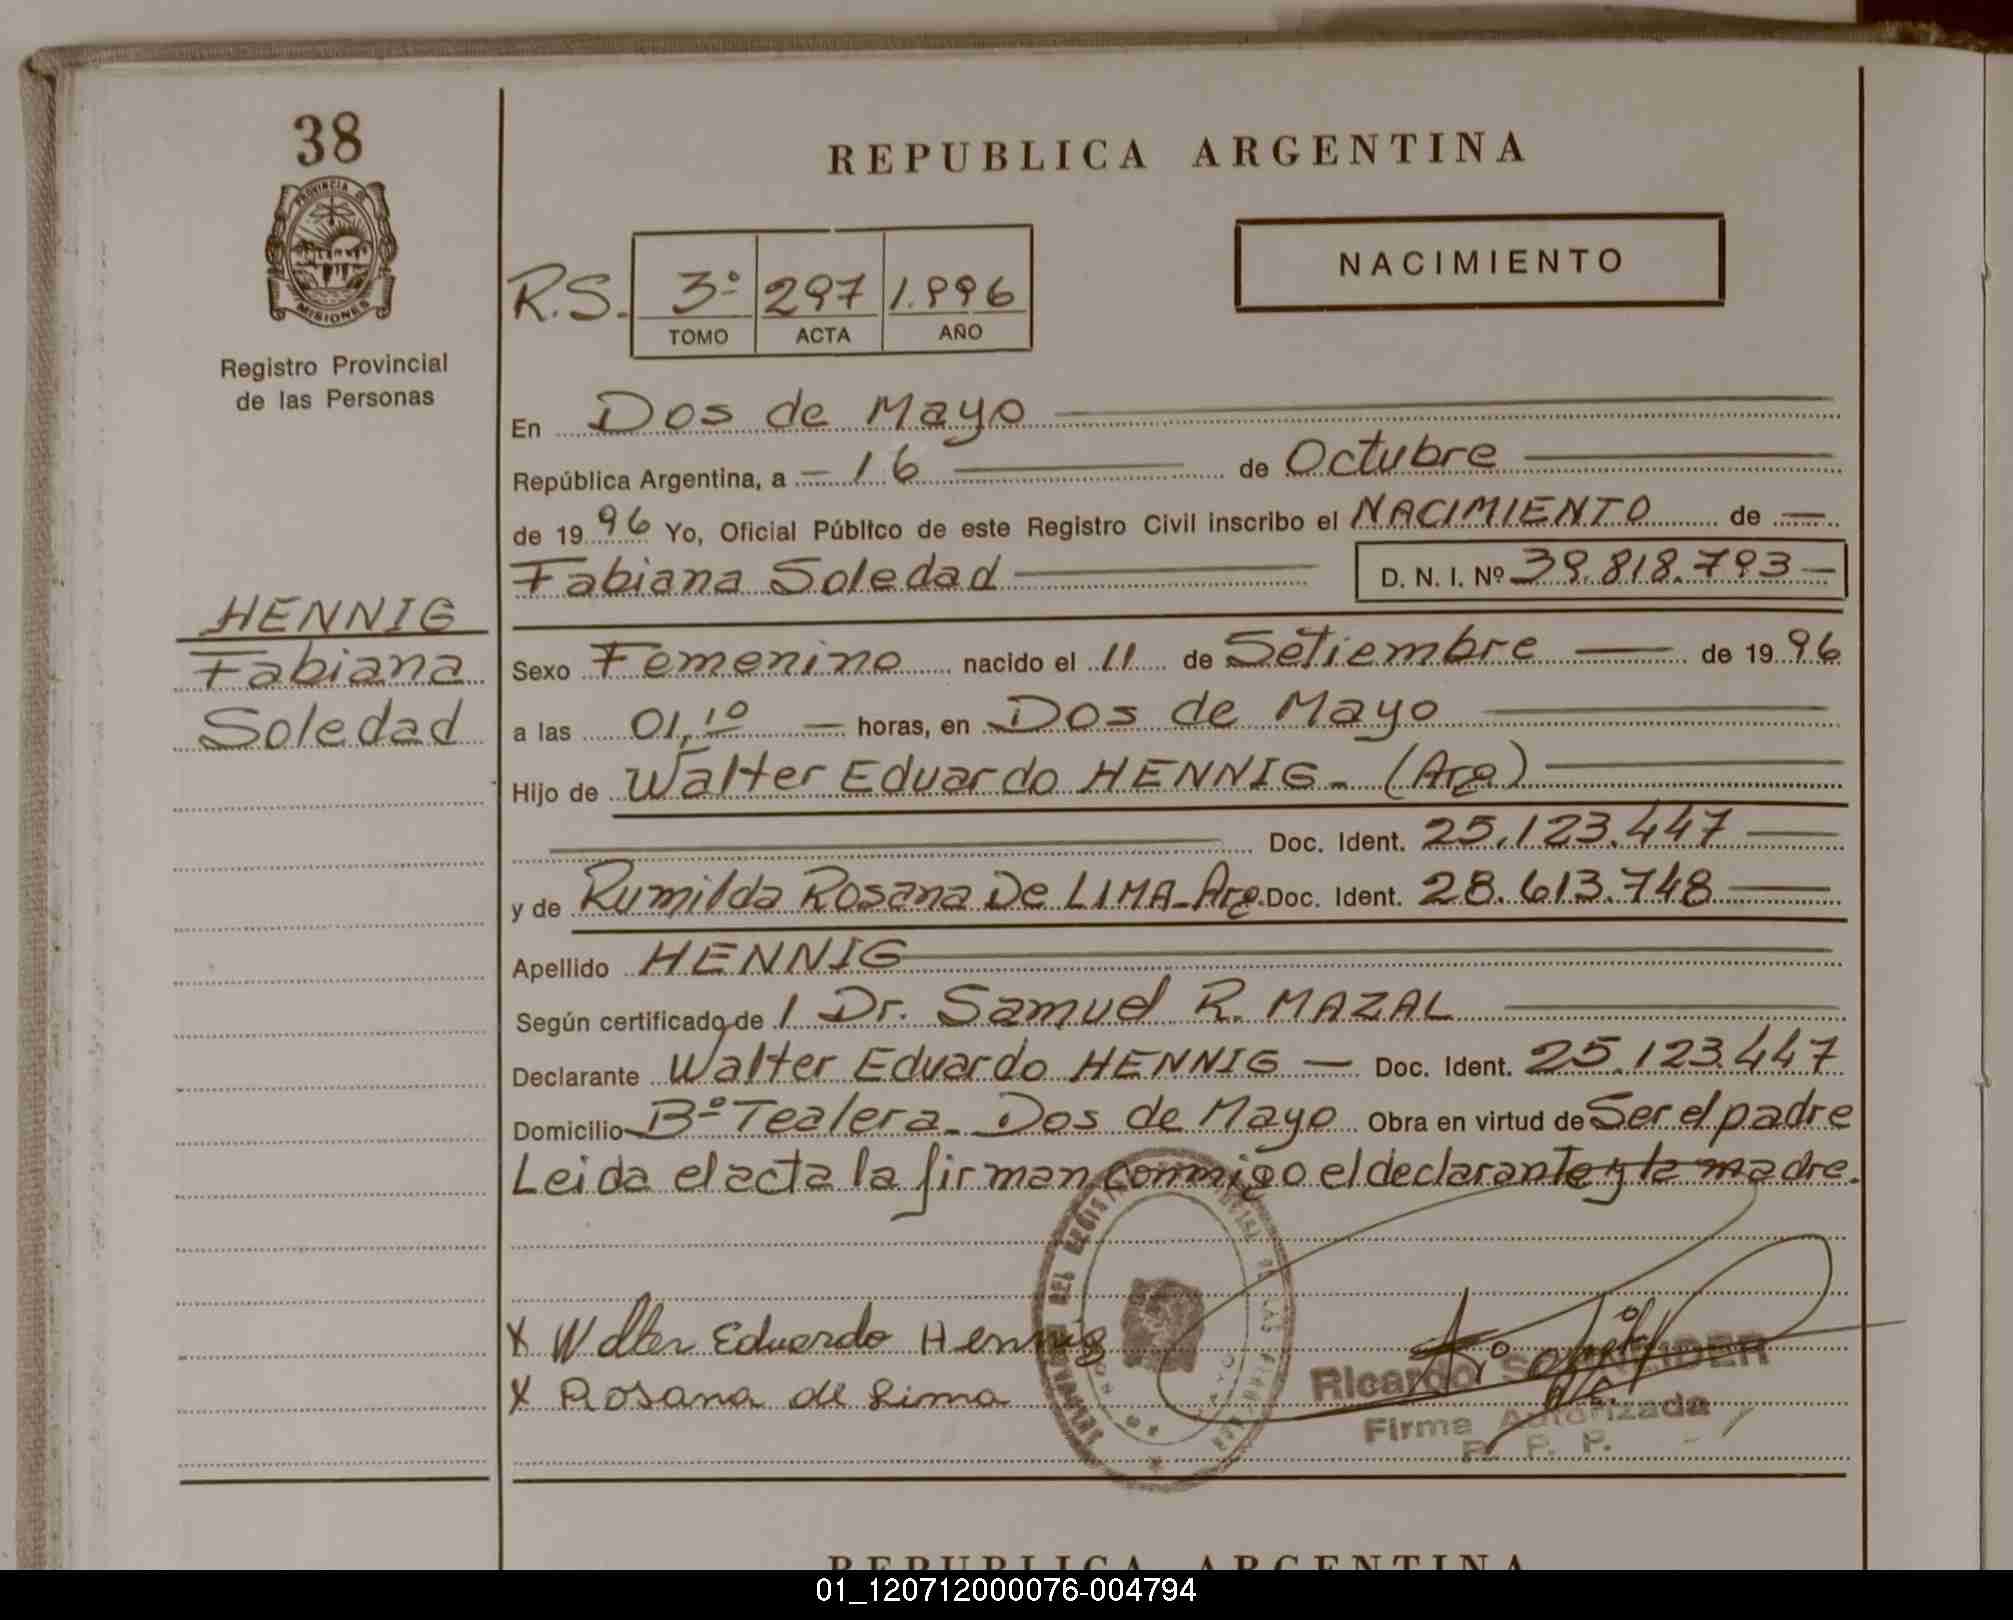 38
PROVINCIA DE
MISIONES
Registro Provincial
de las Personas
HENNIG
Fabiana
Soledad
REPUBLICA ARGENTINA
NACIMIENTO
R.S. 3º 297 1.996
TOMO ACTA AÑO
En Dos de Mayo
República Argentina, a - 16 de Octubre
de 19 96 Yo, Oficial Público de este Registro Civil inscribo el NACIMIENTO de —
Fabiana Soledad D. N. I. Nº 39.818.793 —
Sexo Femenino nacido el 11 de Setiembre — de 19 96
a las 01,10 — horas, en Dos de Mayo
Hijo de Walter Eduardo HENNIG - (Arg)
Doc. Ident. 25.123.447
y de Rumilda Rosana De LIMA - Arg. Doc. Ident. 28.613.748
Apellido HENNIG
Según certificado de 1 Dr. Samuel R. MAZAL
Declarante Walter Eduardo HENNIG — Doc. Ident. 25.123.447
Domicilio Bº Tealera - Dos de Mayo Obra en virtud de Ser el padre
Leida el acta la firman conmigo el declarante y la madre.
X Walter Eduardo Hennig
X Rosana de Lima
Ricardo SCHNEIDER
Firma Autorizada
R. P. P.
REPUBLICA ARGENTINA
01_120712000076-004794